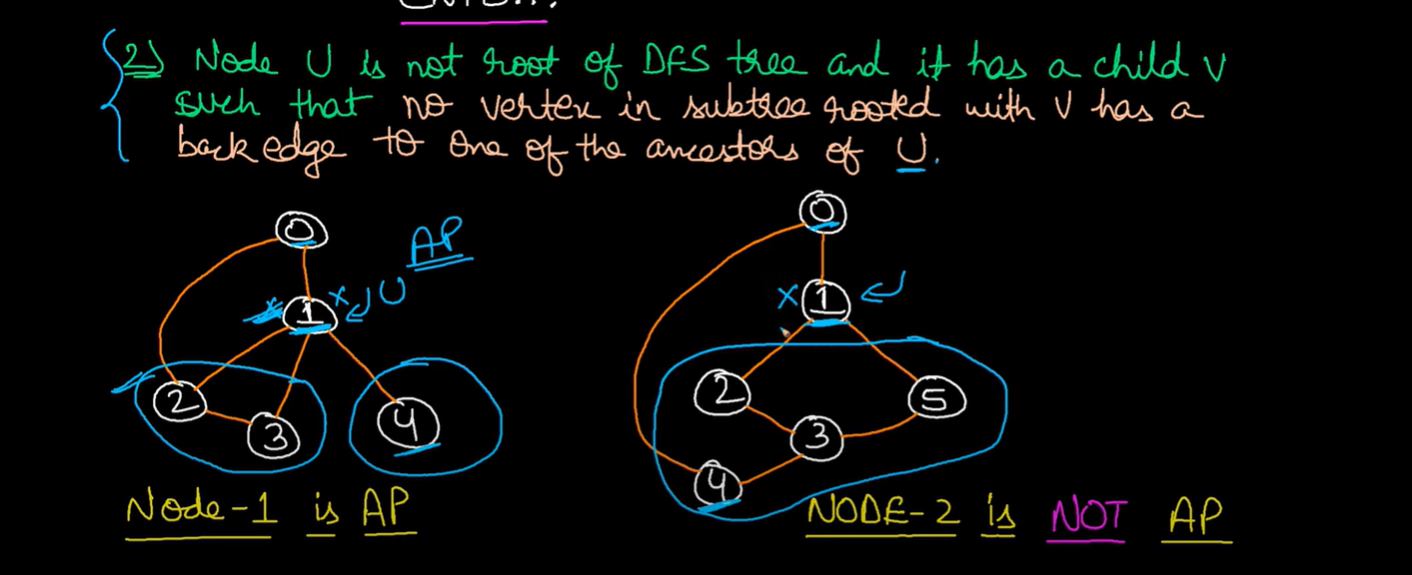 2) Node U is not root of DFS tree and it has a child v
such that no vertex in subtree rooted with v has a
back edge to one of the ancestors of U.
0
AP
1 U
2
3
4
Node-1 is AP
0
1
2
5
3
4
NODE-2 is NOT AP